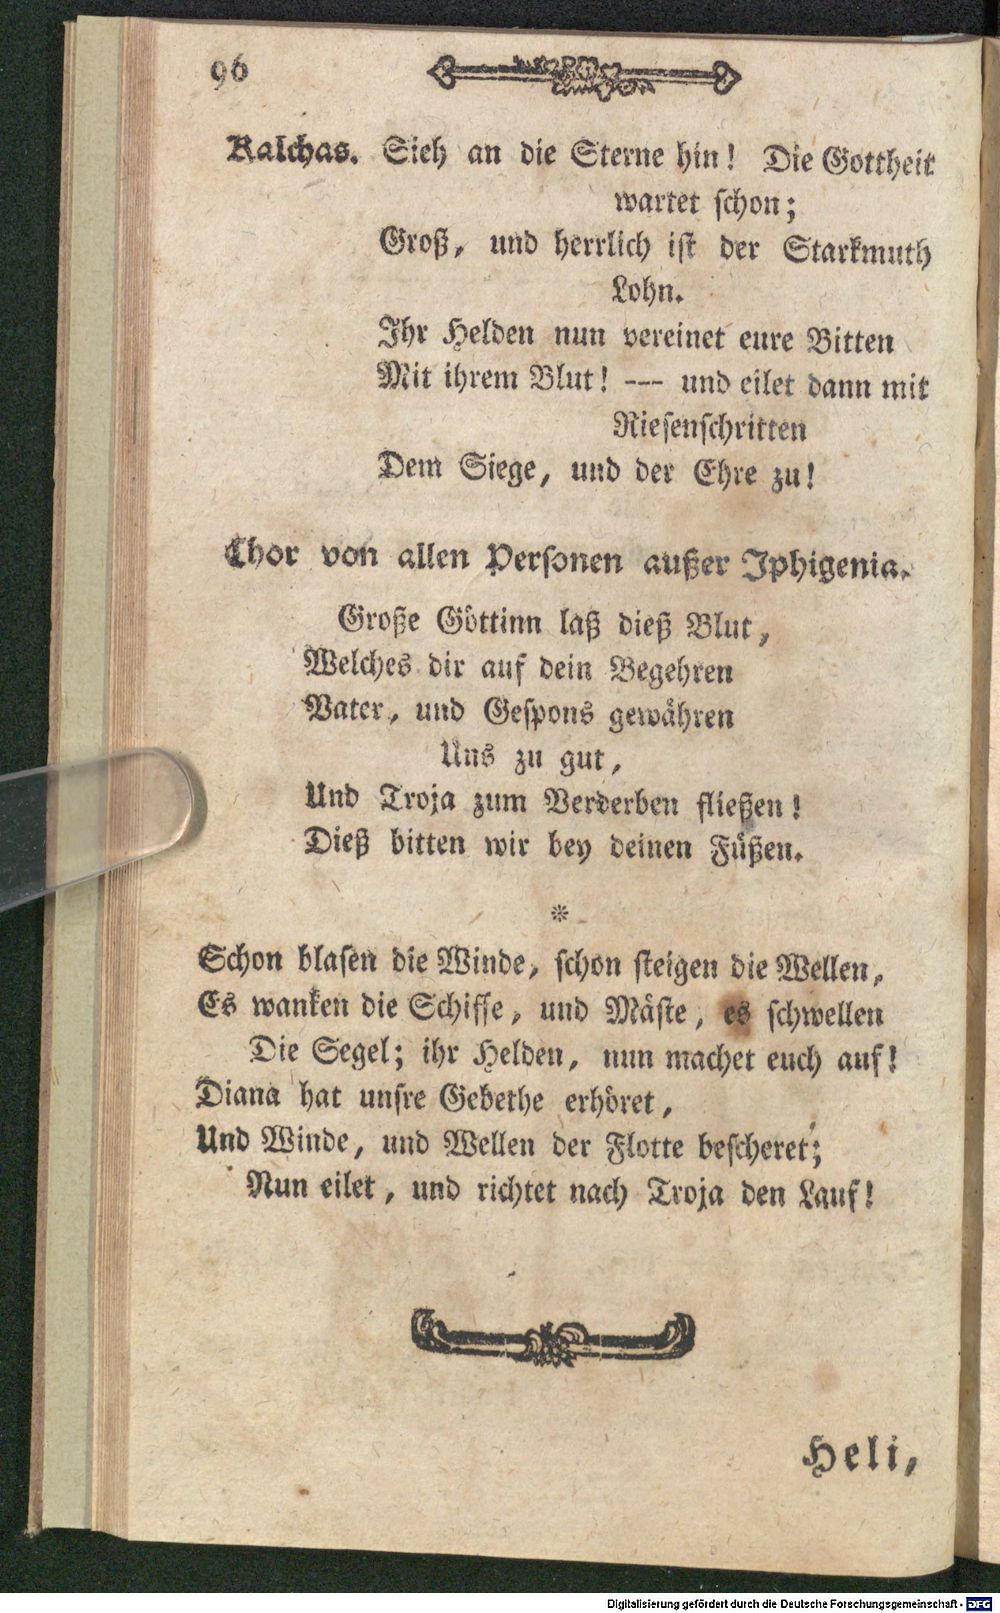 96
Kalchas. Sieh an die Sterne hin! Die Gottheit
wartet schon;
Groß, und herrlich ist der Starkmuth
Lohn.
Ihr Helden nun vereinet eure Bitten
Mit ihrem Blut! --- und eilet dann mit
Riesenschritten
Dem Siege, und der Ehre zu!
Chor von allen Personen außer Iphigenia.
Große Göttinn laß dieß Blut,
Welches dir auf dein Begehren
Vater, und Gespons gewähren
Uns zu gut,
Und Troja zum Verderben fließen!
Dieß bitten wir bey deinen Füßen.
*
Schon blasen die Winde, schon steigen die Wellen,
Es wanken die Schiffe, und Mäste, es schwellen
Die Segel; ihr Helden, nun machet euch auf!
Diana hat unsre Gebethe erhöret,
Und Winde, und Wellen der Flotte bescheret;
Nun eilet, und richtet nach Troja den Lauf!
Heli,
Digitalisierung gefördert durch die Deutsche Forschungsgemeinschaft - DFG